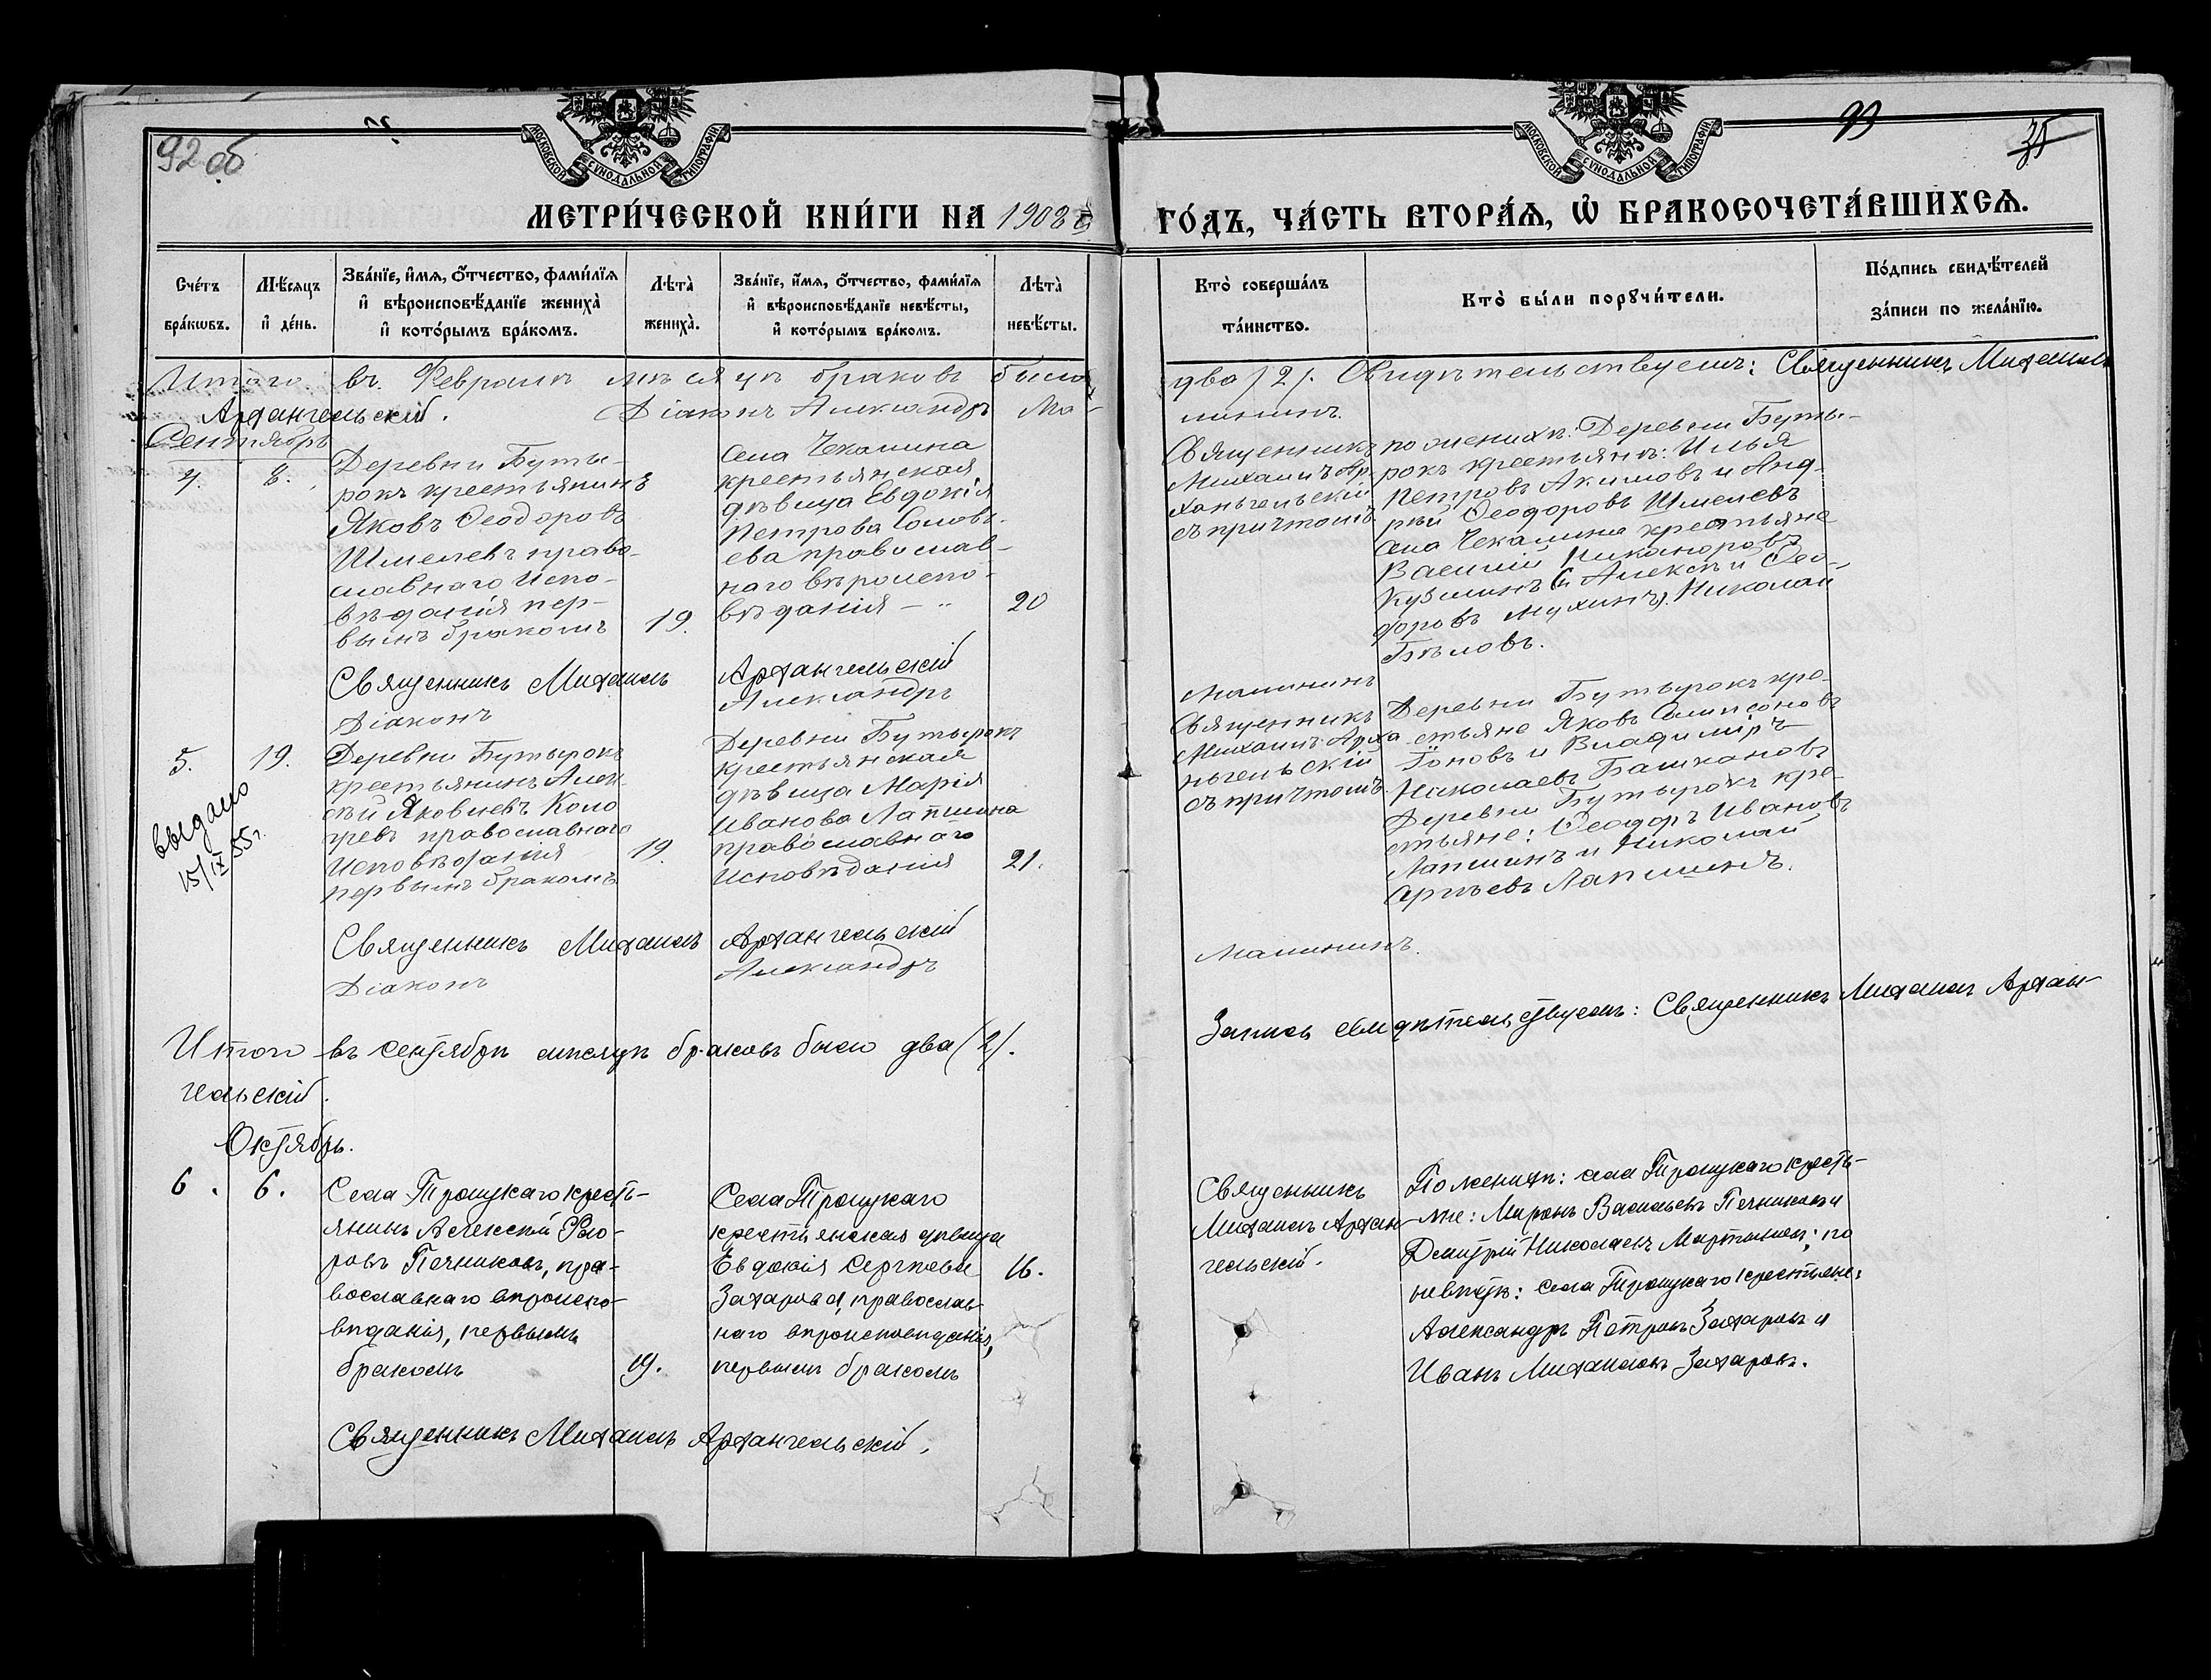 92 об
93
35
МОСКОВСКОЙ СѴНОДАЛЬНОЙ ТИПОГРАФІИ
МОСКОВСКОЙ СѴНОДАЛЬНОЙ ТИПОГРАФІИ
МЕТРИ́ЧЕСКОЙ КНИ́ГИ НА 1908 й ГО́ДЪ, ЧА́СТЬ ВТОРА́Я, Ѡ҆ БРАКОСОЧЕТА́ВШИХСЯ.
Сче́тъ бра́кѡвъ.
Мѣ́сяцъ и҆ де́нь.
Зва́нїе, и҆́мя, ѻ҆́тчество, фами́лїя
и҆ вѣроисповѣ́данїе жениха̀
и҆ кото́рымъ бра́комъ.
Лѣта̀ жениха̀.
Зва́нїе, и҆́мя, ѻ҆́тчество, фами́лїя
и҆ вѣроисповѣ́данїе невѣ́сты,
и҆ кото́рымъ бра́комъ.
Лѣта̀ невѣ́сты.
Кто̀ соверша́лъ та́инство.
Кто̀ бы́ли порꙋчи́тели.
По́дпись свидѣ́телей за́писи по жела́нїю.
Итого въ Февралѣ мѣсяцѣ браковъ было два /2/. Свидѣтельствуемъ: Священникъ Михаилъ
Архангельскій. Діаконъ Александръ Ма-
лининъ.
Сентябрь
4. 8.
Деревни Буты-
рокъ крестьянинъ
Яковъ Ѳеодоровъ
Шмелевъ право-
славнаго испо-
вѣданія пер-
вымъ бракомъ
19.
Села Чекалина
крестьянская
дѣвица Евдокія
Петрова Соловь-
ева православ-
наго вѣроиспо-
вѣданія – "
20
Священникъ
Михаилъ Ар-
хангельскій
съ причтомъ.
по женихѣ: Деревни Буты-
рокъ крестьянъ: Илья
Петровъ Акимовъ и Анд-
рѣй Ѳеодоровъ Шмелевъ
села Чекалина крестьяне
Василій Никаноровъ
Кузминъ и Алексѣй Ѳео-
доровъ Мухинъ). Николай
Бѣловъ.
Священникъ Михаилъ Архангельскій
Діаконъ Александръ Малининъ
5. 19.
выдано
15/IX 55г.
Деревни Бутырокъ
крестьянинъ Алек-
сѣй Яковлевъ Коло
православнаго
исповѣданія
первымъ бракомъ
19.
Деревни Бутырокъ
крестьянская
дѣвица Марія
Иванова Лапшина
православнаго
исповѣданія
21.
Священникъ
Михаилъ Арха
нгельскій
съ причтомъ.
Деревни Бутырокъ кре-
стьяне Яковъ Сампсоновъ
и Владиміръ
Николаевъ Башкановъ
Деревни Бутырокъ кре-
стьяне: Ѳеодоръ Ивановъ
Лапшинъ и Николай
Лапшинъ.
Священникъ Михаилъ Архангельскій
Діаконъ Александръ Малининъ.
Итого въ сентябрѣ мѣсяцѣ браковъ было два /2/. Запись свидѣтельствуемъ: Священникъ Михаилъ Архан-
гельскій.
Октябрь.
6. 6.
Села Троицкаго кресть-
янинъ Алексѣй Ѳео-
ровъ Печниковъ, пра-
вославнаго вѣроиспо-
вѣданія, первымъ
бракомъ
19.
Села Троицкаго
крестьянская дѣвица
Евдокія Сергѣева
Захарова, православ-
наго вѣроисповѣданія,
первымъ бракомъ
16.
Священникъ
Михаилъ Архан-
гельскій.
По женихѣ: села Троицкаго кресть-
яне: Миронъ Васильевъ Печниковъ и
Дмитрій Николаевъ Мартыновъ; по
невѣстѣ: села Троицкаго крестьяне:
Александръ Петровъ Захаровъ и
Иванъ Михаиловъ Захаровъ.
Священникъ Михаилъ Архангельскій.